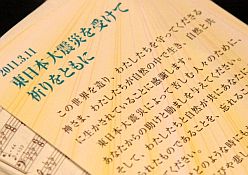 2011.3.11
東日本大震災を受けて
祈りをともに
この世界を造り、わたしたちを守ってくださる
神さま、わたしたちが自然の中で生き、自然と共
に生かされていることに感謝します。
東日本大震災によって苦しむ
あなたからの助けと励ましを与えてください。
そして、わたしたちが自然と共にあなた
れたものであることを、忘れ
れたちにください。